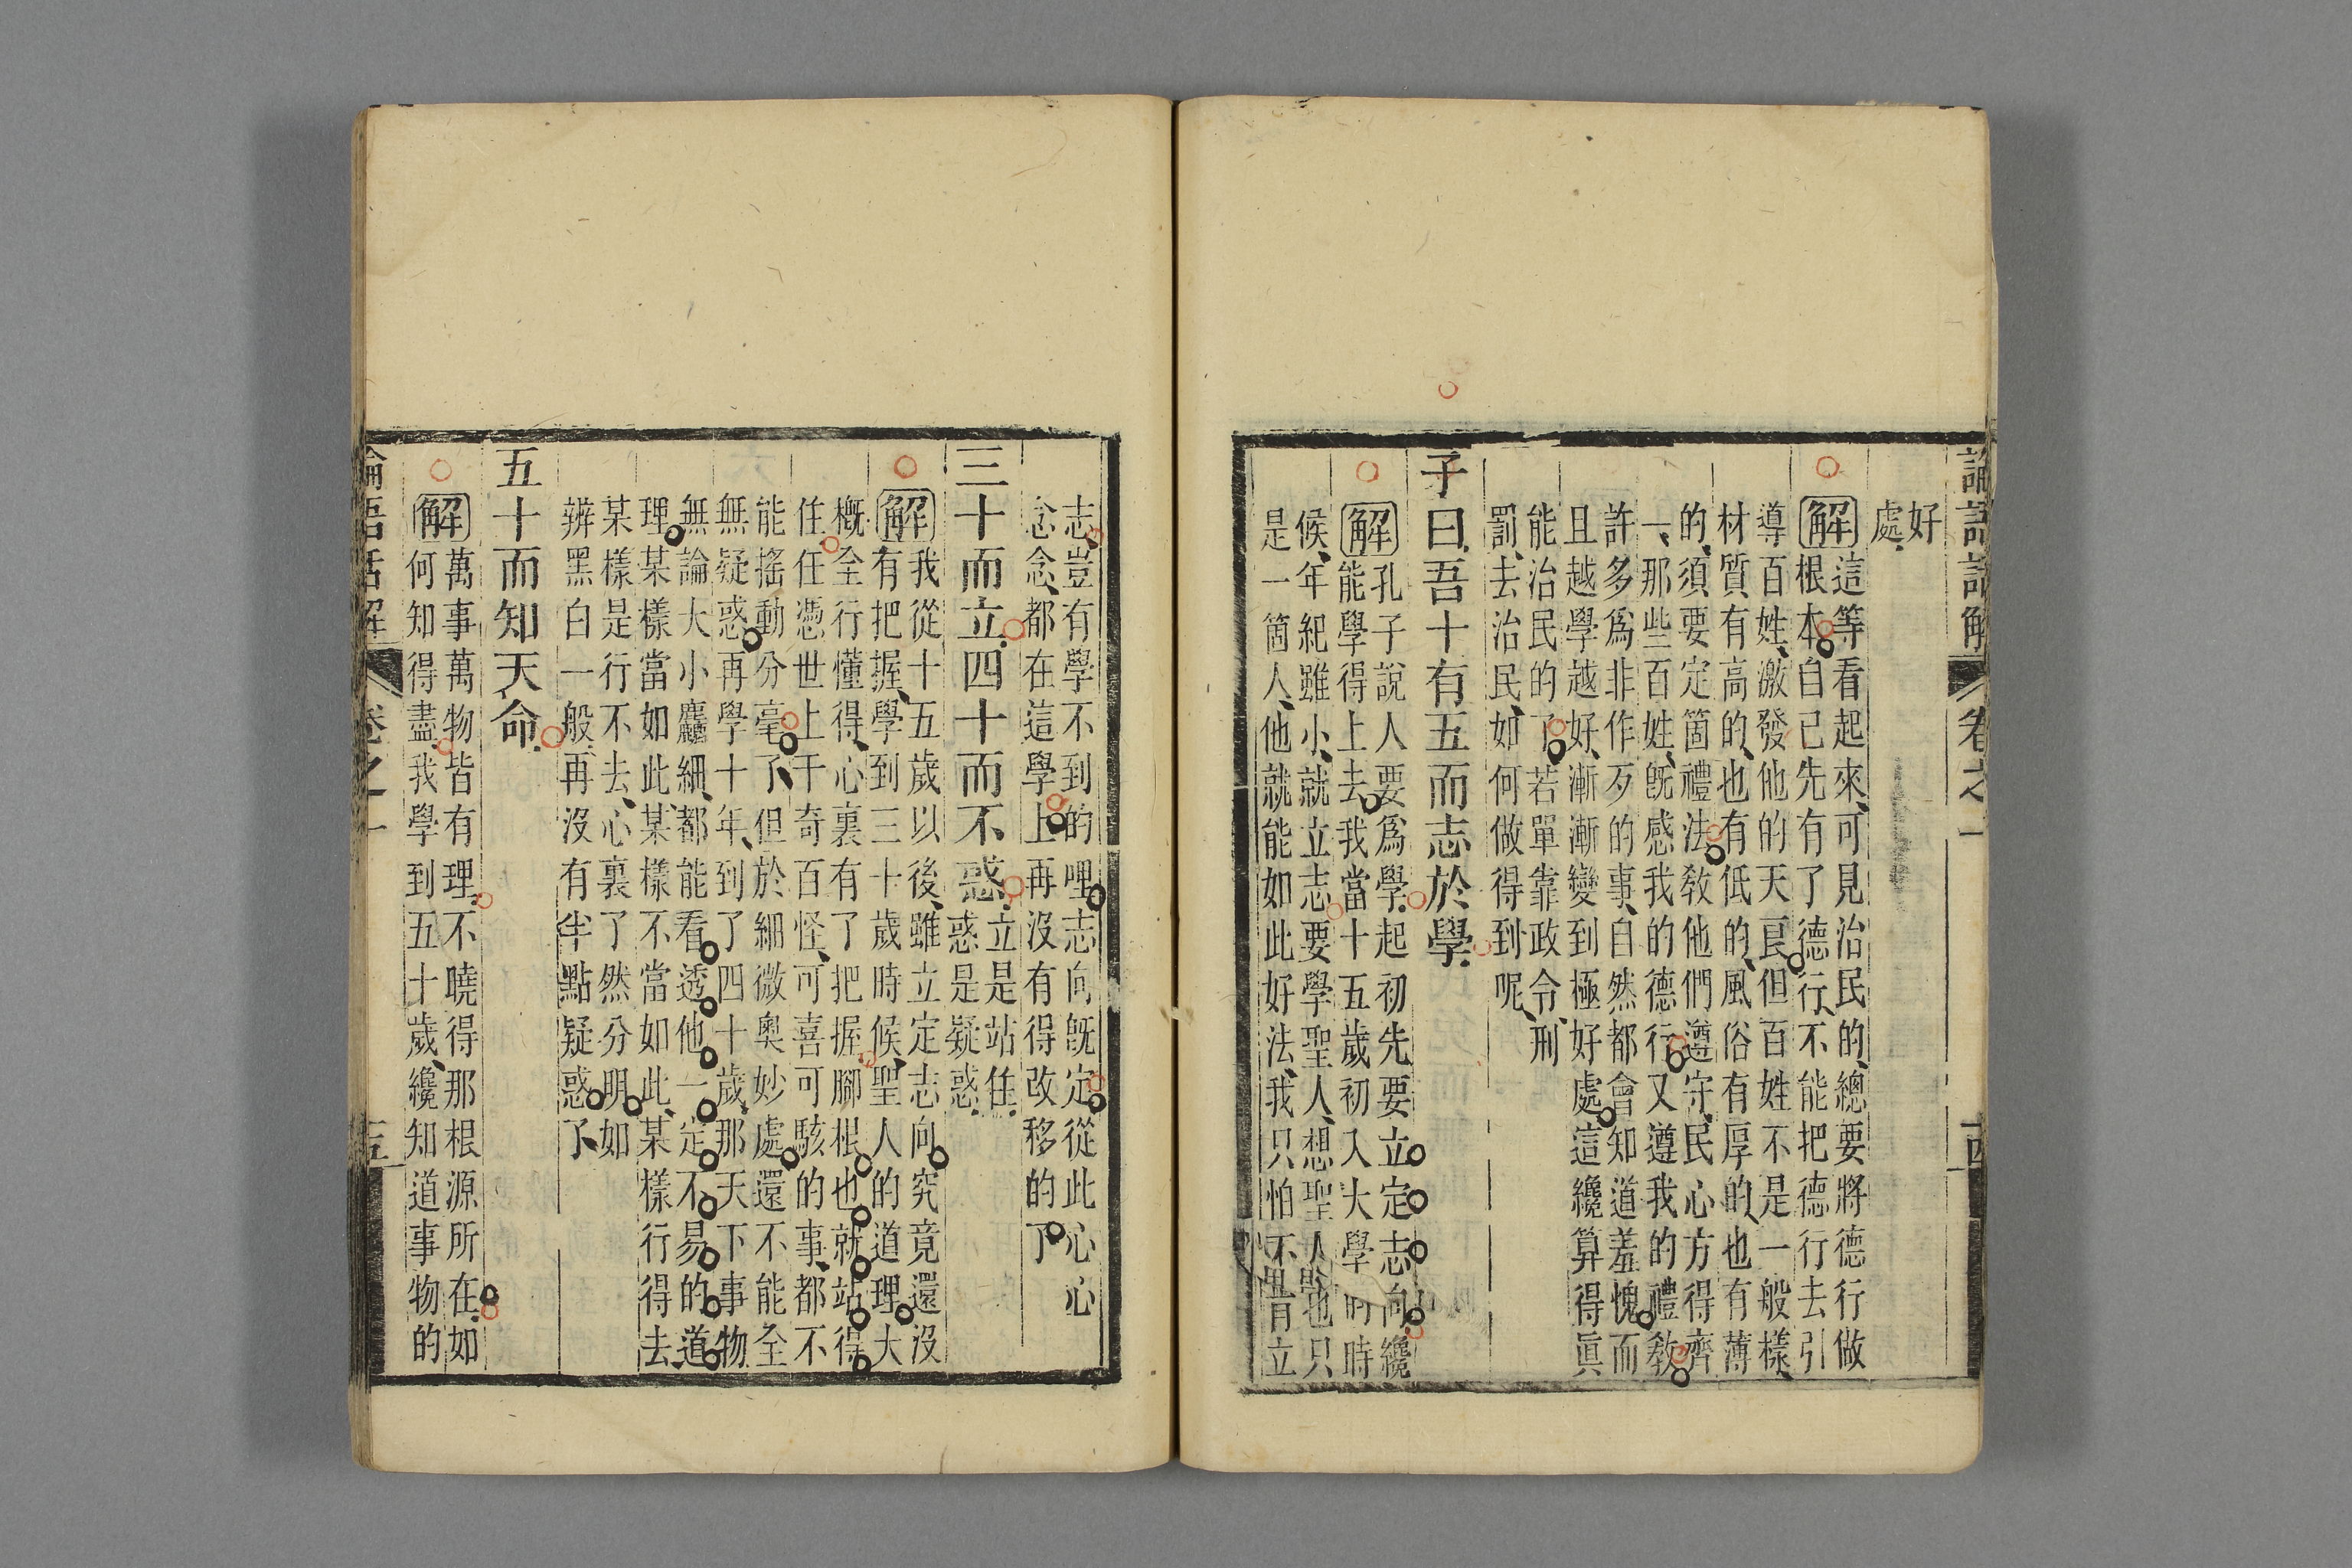 論語話解
卷之一
好
處
解
這等看起來可見治民的總要將德行做
根本自己先有了德行不能把德行去引
導百姓激發他的天良但百姓不是一般樣
材質有高的也有低的風俗有厚的也有薄
的須要定箇禮法敎他們遵守民心方得齊
一那些百姓旣感我的德行又遵我的禮敎
許多爲非作歹的事自然都會知道羞愧而
且越學越好漸漸變到極好處這纔算得眞
能治民的了若單靠政令刑
罰去治民如何做得到呢
子曰吾十有五而志於學
解
孔子說人要爲學起初先要立定志向纔
能學得上去我當十五歲初入大學的時
候年紀雖小就立志要學聖人想聖人也只
是一箇人他就能如此好法我只怕不肯立
志豈有學不到的哩志向旣定從此心心
念念都在這學上再沒有得改移的了
三十而立四十而不惑
立是站住
惑是疑惑
解
我從十五歲以後雖立定志向究竟還沒
有把握學到三十歲時候聖人的道理大
槪全行懂得心裏有了把握腳根也就站得
住任憑世上千奇百怪可喜可駭的事都不
能搖動分毫了但於細微奧妙處還不能全
無疑惑再學十年到了四十歲那天下事物
無論大小麤細都能看透他一定不易的道
理某樣當如此某樣不當如此某樣行得去
某樣是行不去心裏了然分明如
辨黑白一般再沒有半點疑惑了
五十而知天命
解
萬事萬物皆有理不曉得那根源所在如
何知得盡我學到五十歲纔知道事物的
論語話解
卷之一